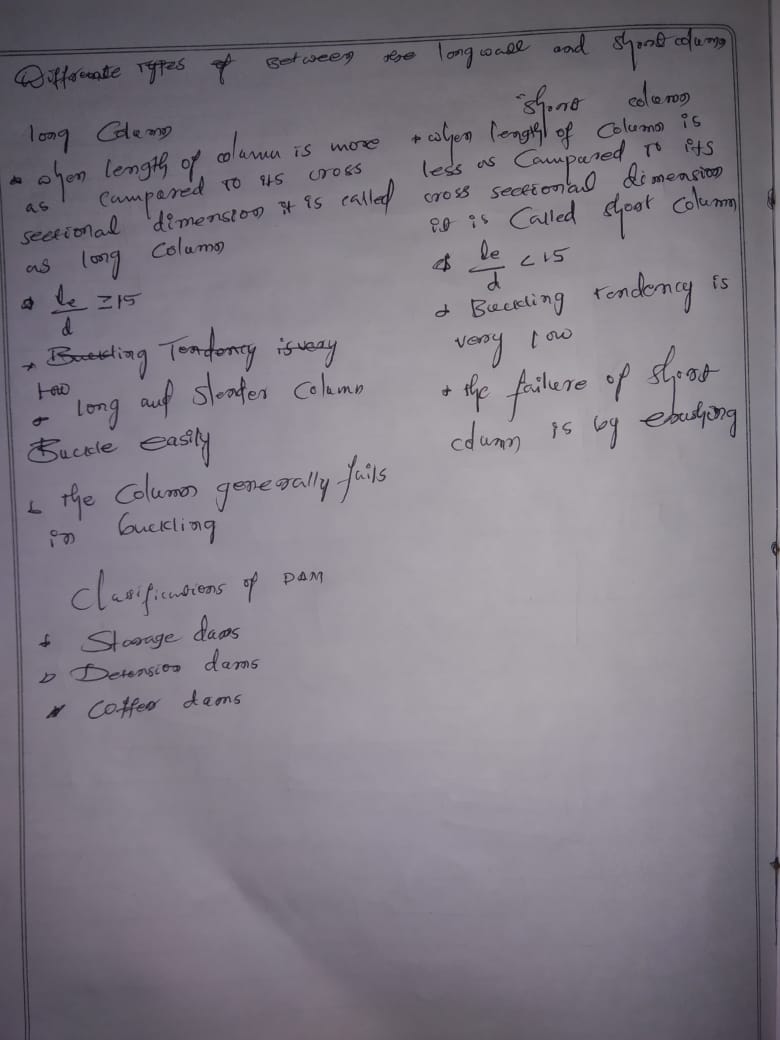 Differente Types of Between the long wall and short column
long Column
* when length of column is more
as compared to its cross
sectional dimension it is called
as long Column
* le/d ≥ 15
* Buckling Tendency is very
low
* long and slender Column
Buckle easily
* the Column generally fails
in buckling
short column
* when length of Column is
less as Compared To its
cross sectional dimension
it is Called short Column
* le/d < 15
* Buckling tendency is
very low
* the failure of short
column is by crushing
Clasifications of DAM
* Storage dams
* Detension dams
* Coffer dams